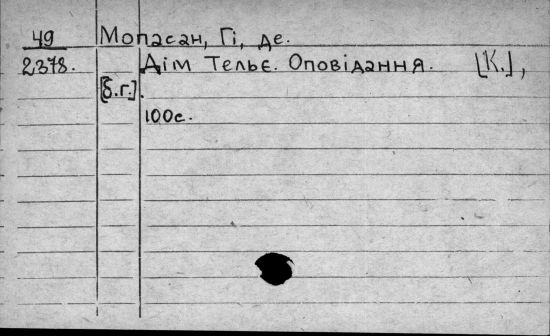 49 Мопасан, Гі, де.
2378. Дім Тельє. Оповідання. [К.],
[б.г.].
100с.